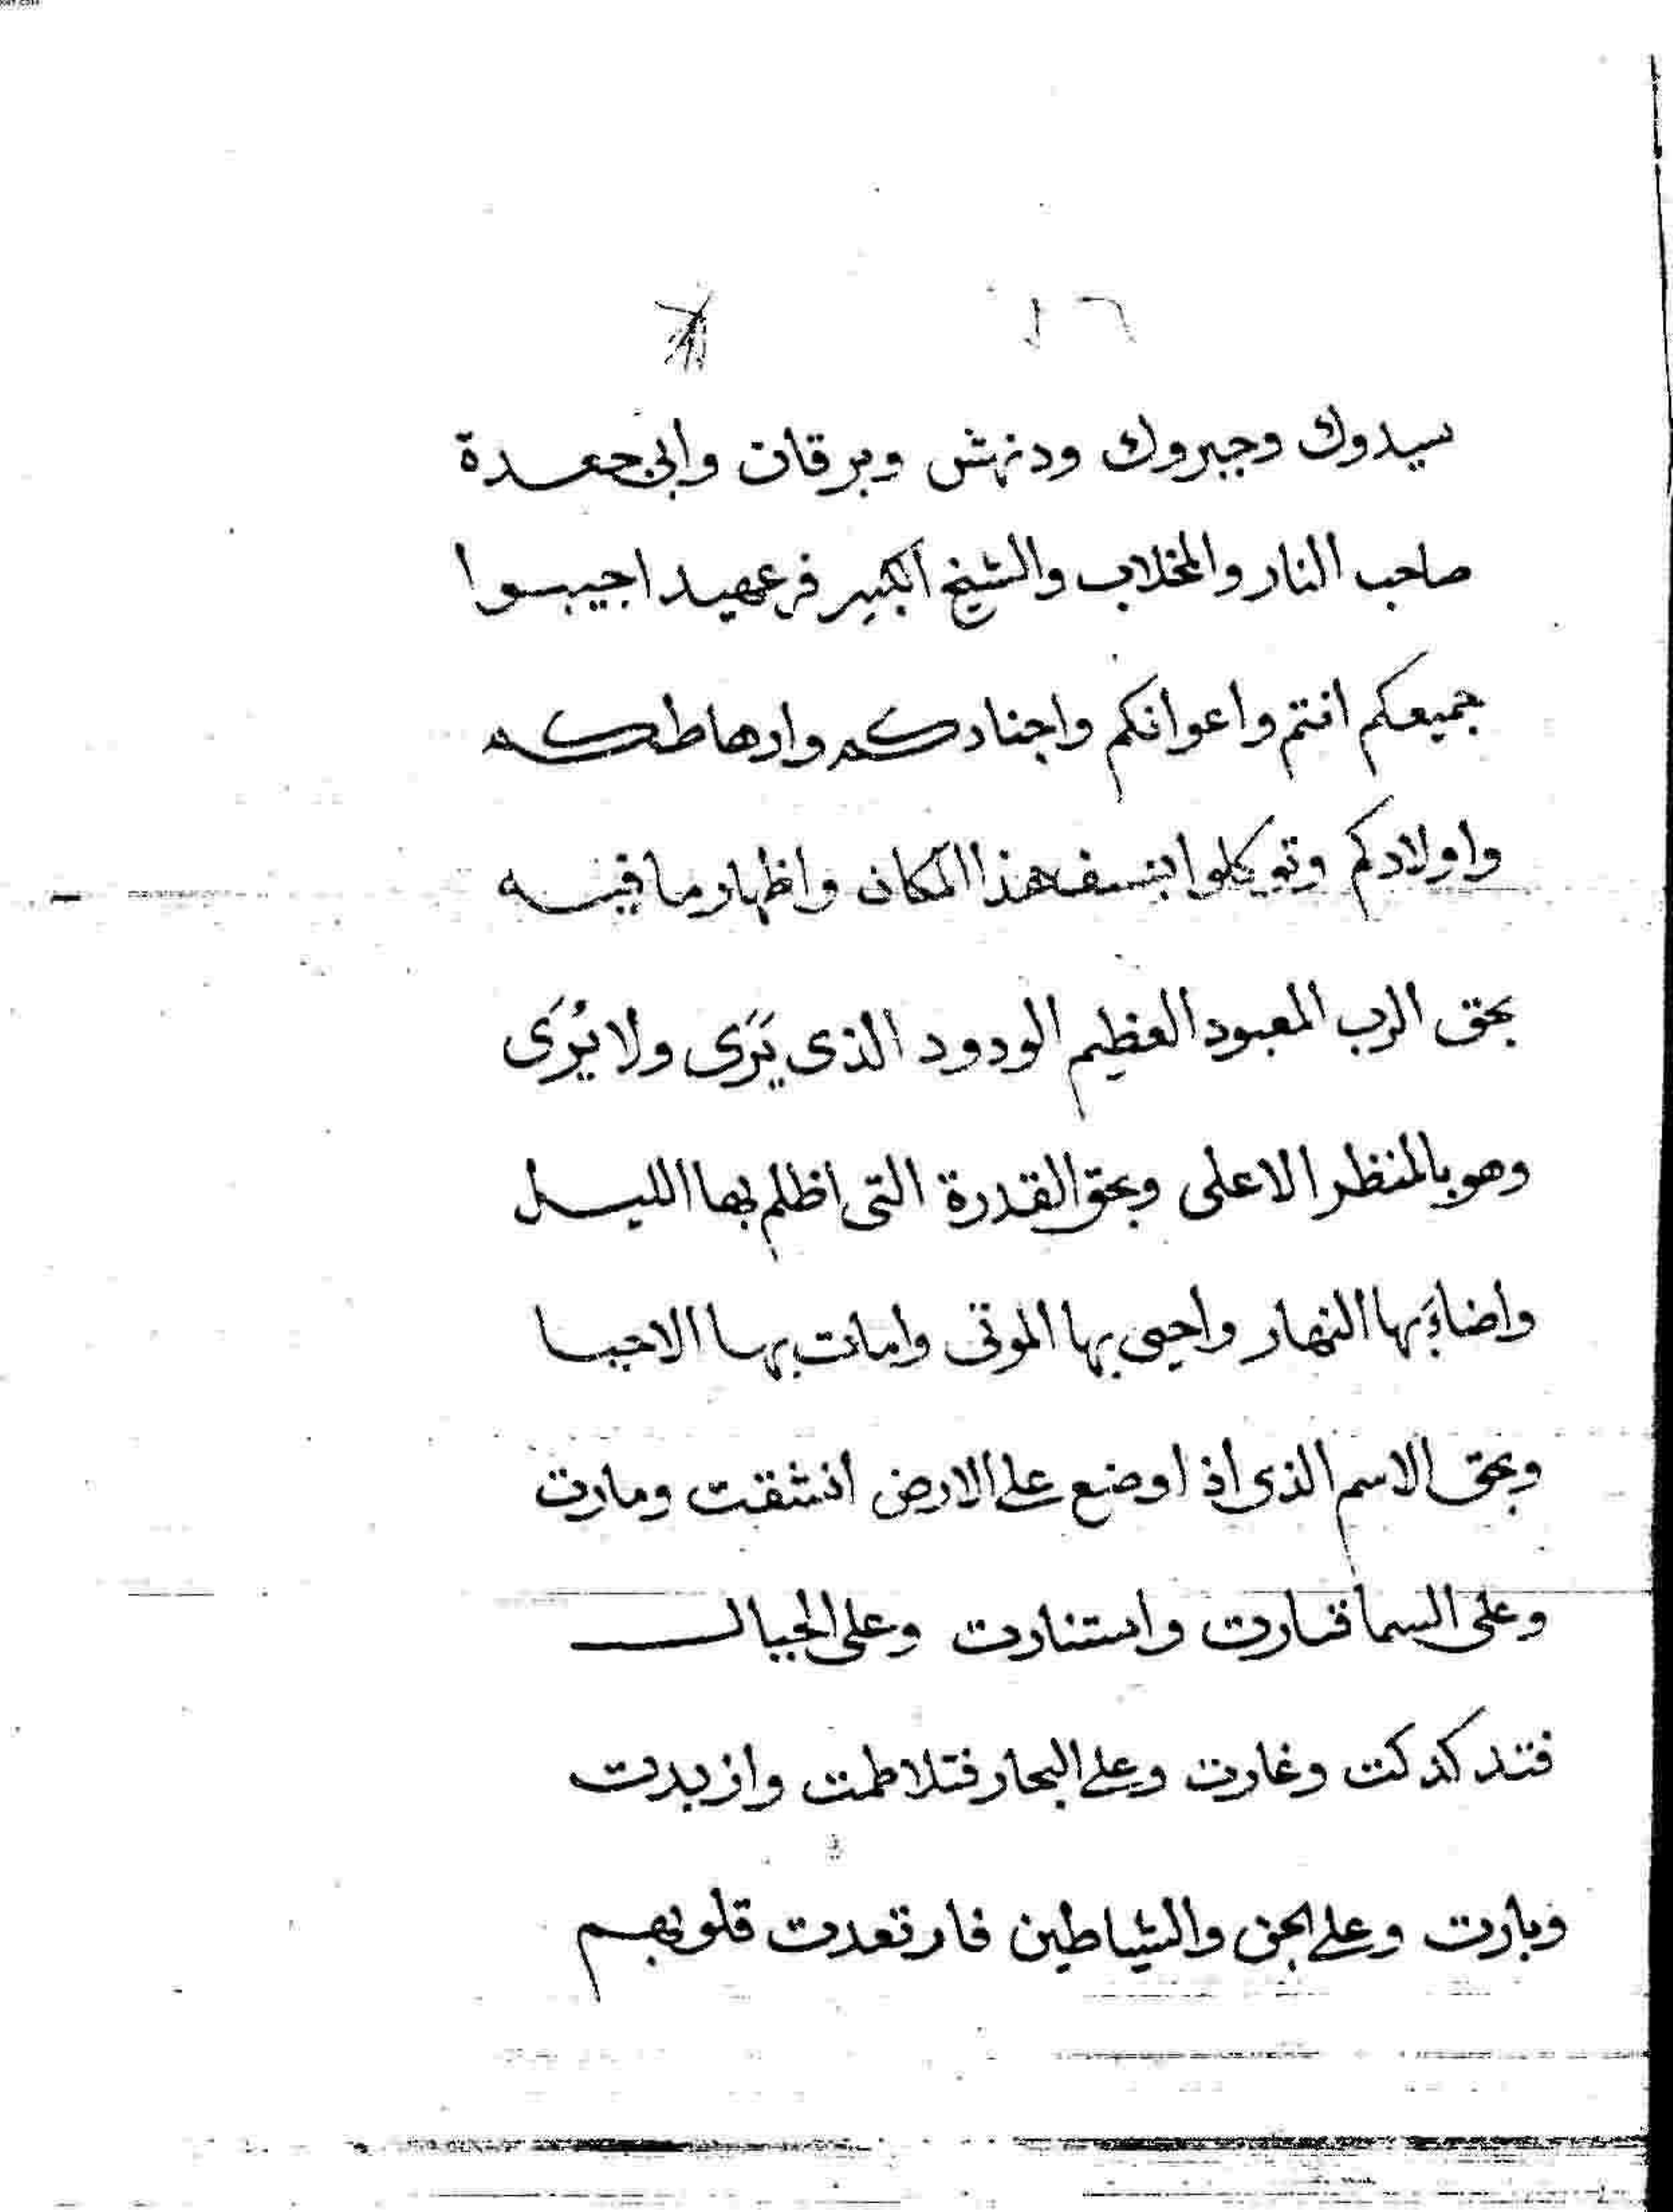 سيدوك وجبروك ودنهش وبرقان وابى جعدة
صاحب النار والمخلاب والشيخ الكبير فرعهيد اجيبوا
جميعكم انتم واعوانكم واجنادكم وارهاطكم
واولادكم وتوكلوا بنسف هذا المكان واظهار ما فيه
بحق الرب المعبود العظيم الودود الذى يَرَى ولا يُرَى
وهو بالمنظر الاعلى وبحق القدرة التى اظلم بها الليل
واضاء بها النهار واحيى بها الموتى وامات بها الاحيا
وبحق الاسم الذى اذا وضع على الارض انشقت ومارت
وعلى السما فنارت واستنارت وعلى الجبال
فتدكدكت وغارت وعلى البحار فتلاطمت وازبدت
وبارت وعلى الجن والشياطين فارتعدت قلوبهم